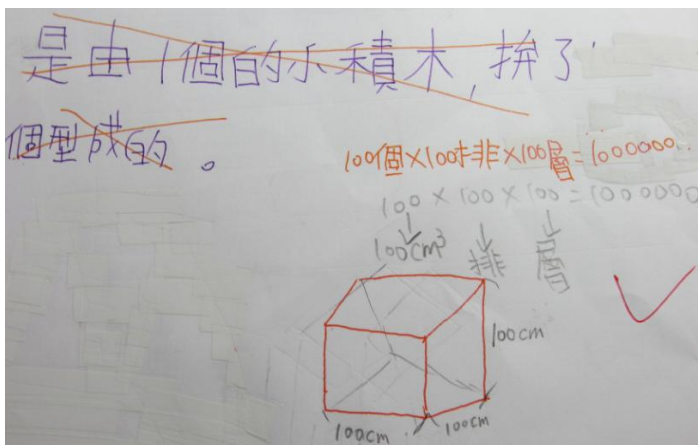 是由1個的小積木,拚了
個型成的。
100個×100排×100層=1000000
100×100×100=1000000
100cm³ 排 層
100cm
100cm 100cm